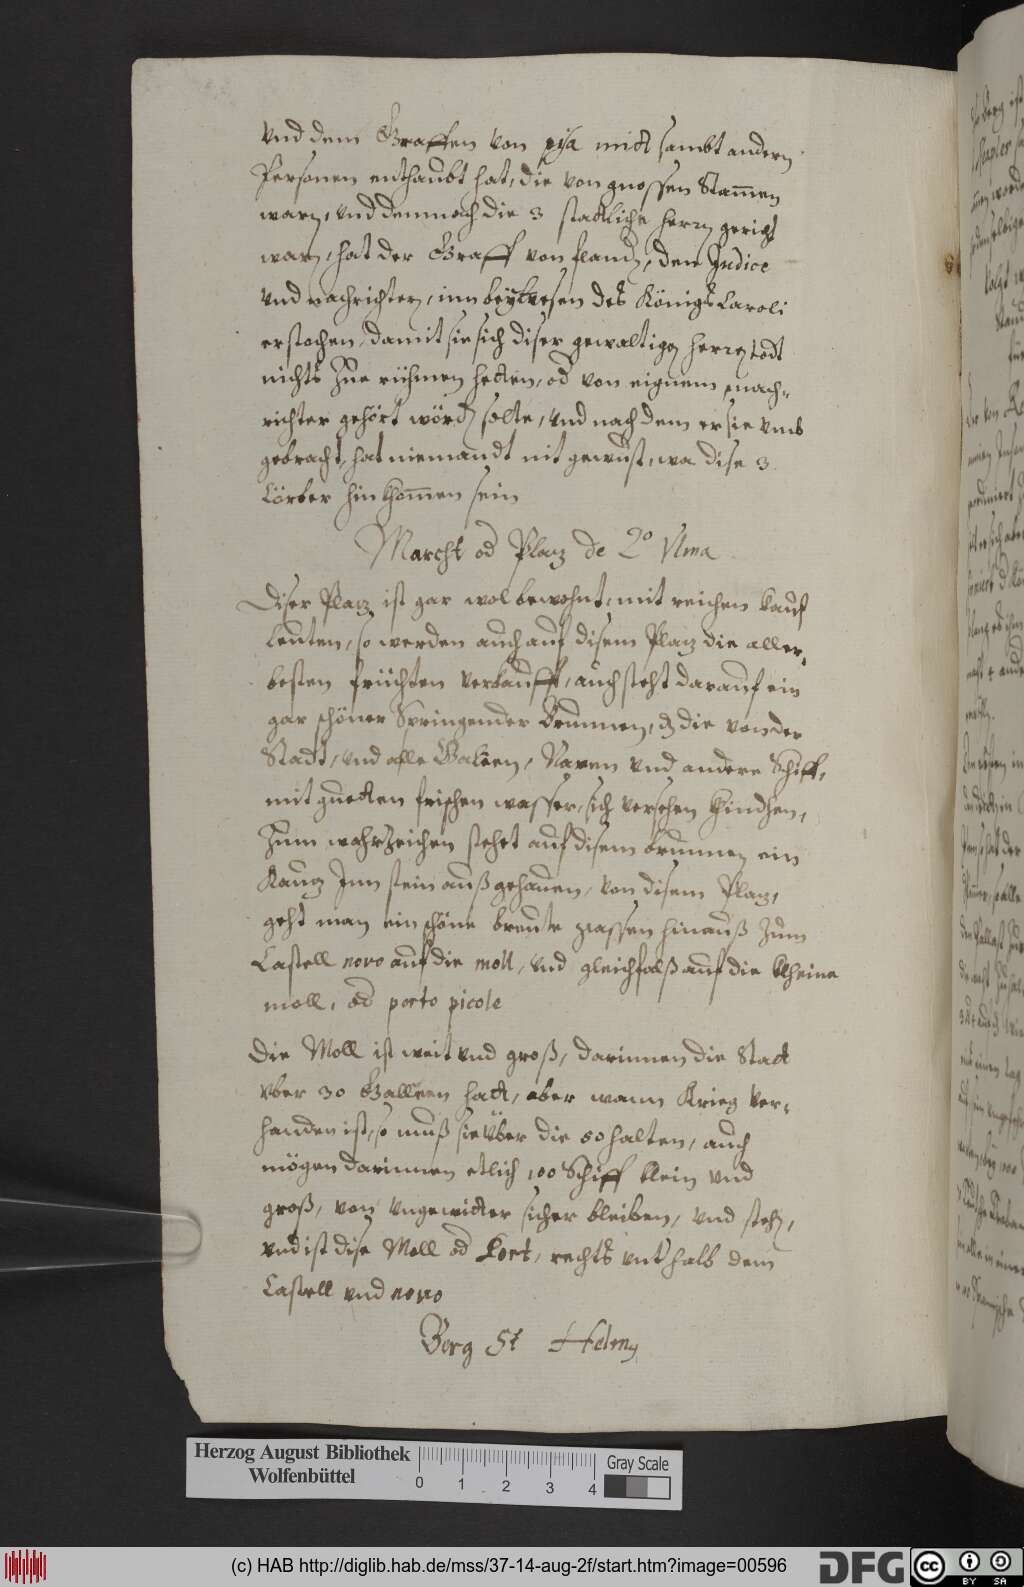 Vnd dem Graffen von pisa mitt sambt andern
Personen enthaubt hat, die von grossen Stam̄en
warn, vnd dennoch die 3 stattliche herrn gericht
warn, hat der Graff von fland, den Judice
vnd nachrichter, inn beywesen des Königs Caroli
erstochen, damit sie sich diser gewaltigen herren todt
nichts zue rüehmen hetten, od von eignem nach-
richter gehört wörd solte, vnd nach dem er sie vmb
gebracht, hat niemandt nit gewust, wa dise 3
Cörber hin khom̄en sein
Marckt od Plaz de L'o Vlma
Diser Plaz ist gar wol bewohnt, mit reichen Kauf
leuten, so werden auch auf disem Plaz die aller-
besten früchten verkaufft, auch steht darauf ein
gar schöner Springender Brunnen, dz die von der
Stadt, vnd alle Galeen, Naven vnd andere Schiff,
mit guetten frischen wasser, sich versehen khindhen,
Zum wahrzeichen stehet auf disem brunnen ein
Kauz Jnn stein außgehauen, von disem Plaz,
geht man ein schöne breute gassen hinauß zum
Castell novo auf die moll, vnd gleichfalß auf die kheine
moll, od porto picole
Die Moll ist weit vnd groß, darinnen die Statt
vber 30 Galleen hatt, aber wann Krieg ver-
handen ist, so muß sie über die 50 halten, auch
mögen darinnen etlich 100 Schiff klein vnd
groß, von vngewitter sicher bleiben, vnd stehn,
vnd ist dise Moll od Port, rechts vnthalb dem
Castell vnd novo
Berg St Helmy
Herzog August Bibliothek
Wolfenbüttel
0 1 2 3 4
Gray Scale
(c) HAB http://diglib.hab.de/mss/37-14-aug-2f/start.htm?image=00596
DFG
cc BY SA